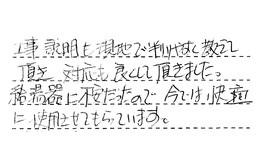 工事説明も現地で判りやすく教えて
頂き 対応も良くして頂きました。
給湯器に不安だったので 今では快適
に使用させてもらっています。